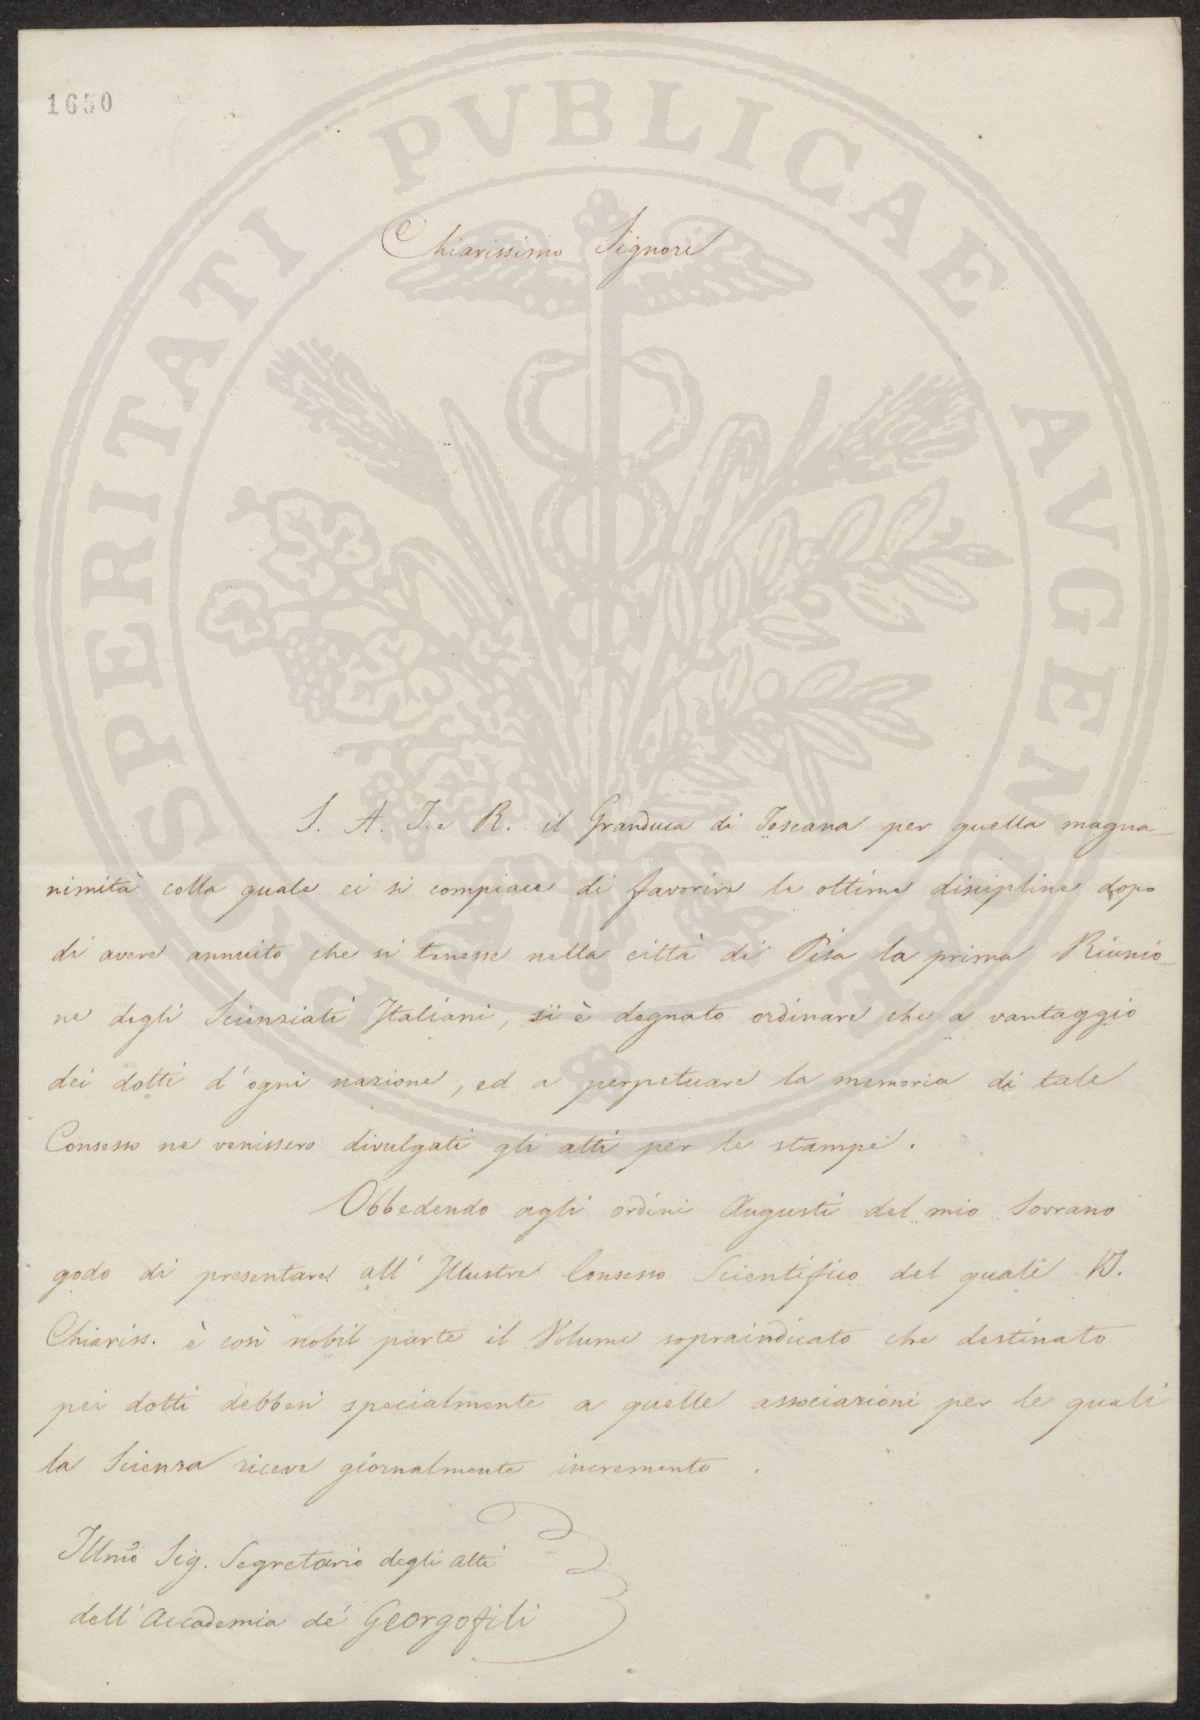 1650
PROSPERITATI PVBLICAE AVGENDAE
Chiarissimo Signore
S. A. I. e R. il Granduca di Toscana per quella magna-
nimità colla quale ei si compiace di favorire le ottime discipline dopo
di avere annuito che si tenesse nella città di Pisa la prima Riunio-
ne degli Scienziati Italiani, si è degnato ordinare che a vantaggio
dei dotti d'ogni nazione, ed a perpetuare la memoria di tale
Consesso ne venissero divulgati gli atti per le stampe.
Obbedendo agli ordini Augusti del mio Sovrano
godo di presentare all'Illustre Consesso Scientifico del quale VS.
Chiariss. è così nobil parte il Volume sopraindicato che destinato
pei dotti debbesi specialmente a quelle associazioni per le quali
la Scienza riceve giornalmente incremento.
Illmo Sig. Segretario degli Atti
dell'Accademia de' Georgofili